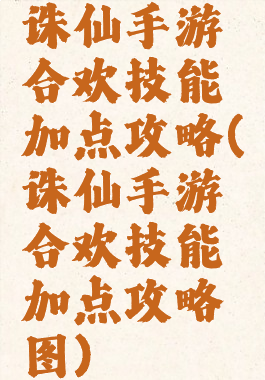 诛仙手游
合欢技能
加点攻略(
诛仙手游
合欢技能
加点攻略
图)